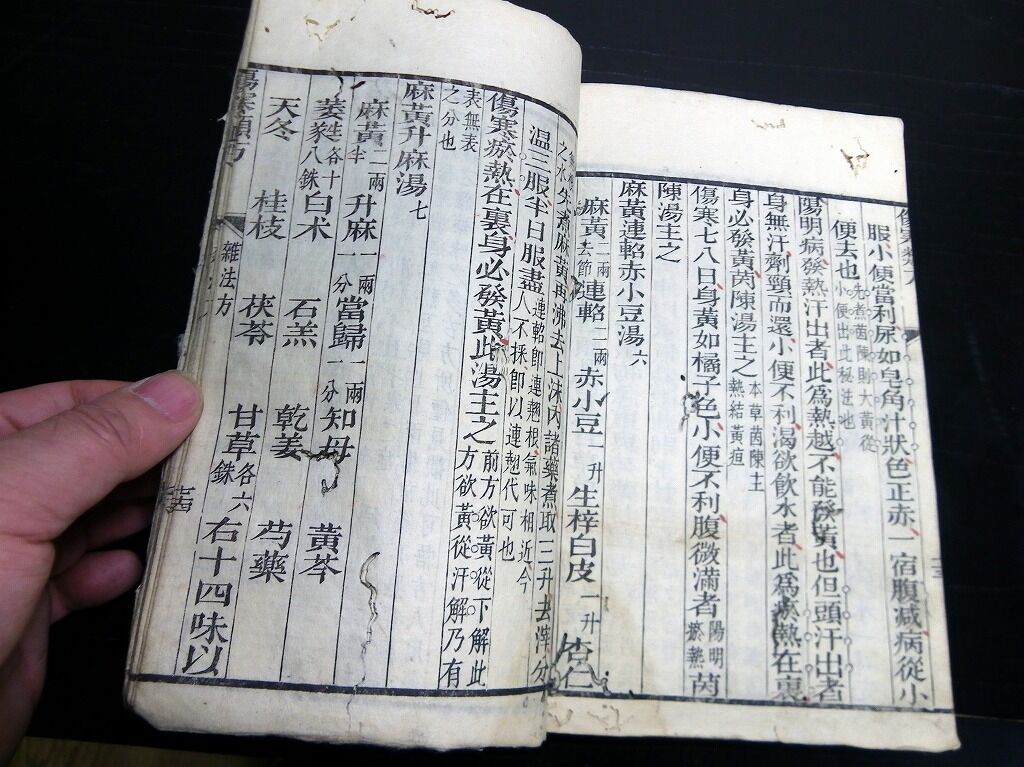 服小便當利尿如皂角汁狀色正赤一宿腹減病從小
便去也先煮茵陳則大黃從小便出此秘法也
陽明病發熱汗出者此為熱越不能發黃也但頭汗出者
身無汗劑頸而還小便不利渴欲飲水者此為瘀熱在裏
身必發黃茵陳湯主之本草茵陳主熱結黃疸
傷寒七八日身黃如橘子色小便不利腹微滿者陽明瘀熱茵
陳湯主之
麻黃連軺赤小豆湯六
麻黃二兩去節連軺二兩赤小豆一升生梓白皮一升杏仁
之水先煮麻黃再沸去上沫內諸藥煮取三升去滓分
温三服半日服盡連軺即連翹根氣味相近今人不採即以連翹代可也
傷寒瘀熱在裏身必發黃此湯主之前方欲黃從下解此方欲黃從汗解乃有
表無表之分也
麻黃升麻湯七
麻黃二兩半升麻一兩一分當歸一兩一分知母黃芩
萎蕤生各十八銖白术石羔乾姜芍藥
天冬桂枝茯苓甘草各六銖右十四味以
傷寒類方
雜法方